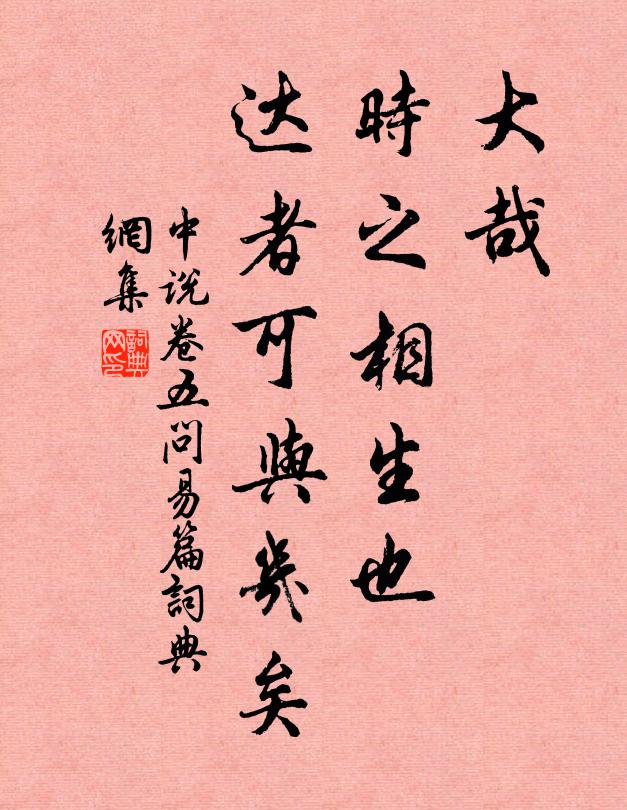 大哉
時之相生也
达者可與幾矣
中说卷五问易篇詞典
網集
詞典
网印